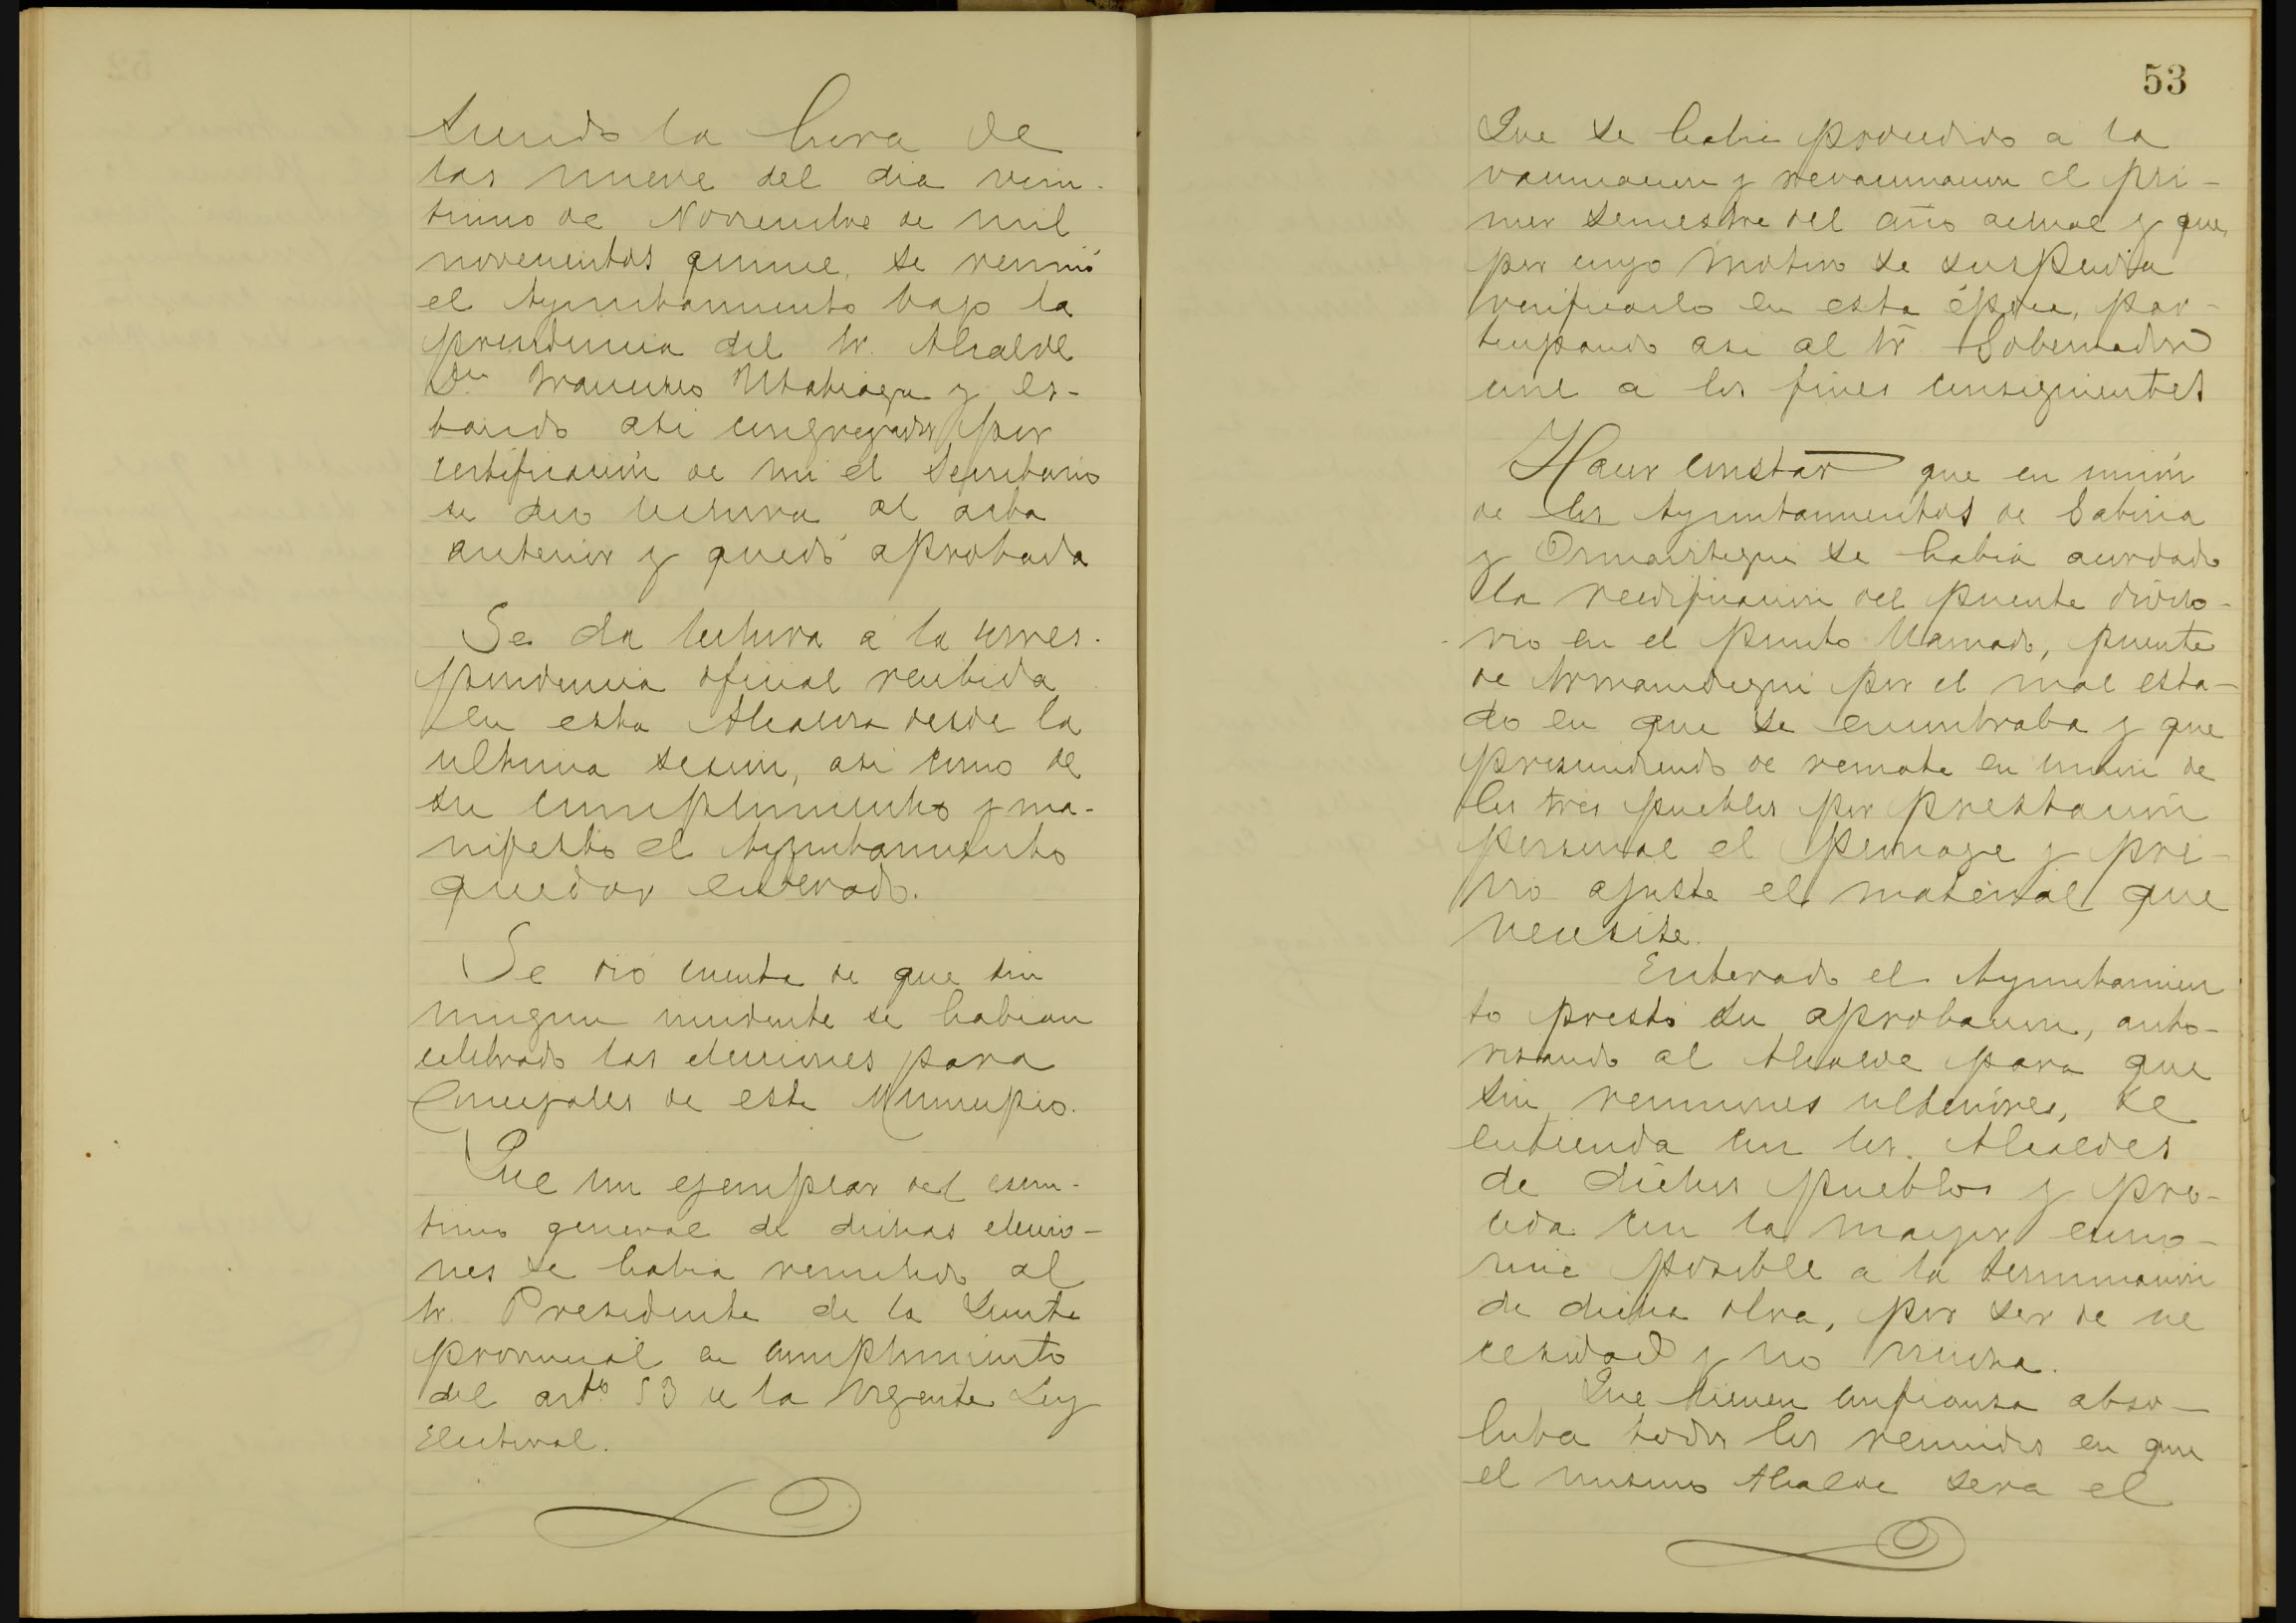 Siendo la hora de
las nueve del dia vein-
tiuno de Noviembre de mil
novecientos quince, se reunió
el Ayuntamiento bajo la
presidencia del Sr. Alcalde
Dn Francisco Ustabiaga y es-
tando asi congregados por
certificación de mi el Secretario
se dio lectura al acta
anterior y quedó aprobada
Se da lectura a la corres-
pondencia oficial recibida
en esta Alcaldia desde la
ultima sesion, asi como de
su cumplimiento y ma-
nifesto el Ayuntamiento
quedar enterado.
Se dió cuenta de que sin
ningun incidente se habian
celebrado las elecciones para
Concejales de este Municipio.
Que un ejemplar del escru-
tinio general de dichas eleccio-
nes se habia remitido al
Sr. Presidente de la Junta
provincial en cumplimiento
del arto 53 de la vigente Ley
Electoral.
53
Que se habia procedido a la
vacunacion y revacunacion el pri-
mer semestre del año actual y que
por cuyo motivo se suspendia
verificarlo en esta época, par-
ticipando asi al Sr Gobernador
civil a los fines consiguientes
Hacer constar que en unión
de los Ayuntamientos de Gabiria
y Ormaiztegui se habia acordado
la reedificacion del puente diviso-
rio en el punto llamado, puente
de por el mal esta-
do en que se encontraba y que
prescindiendo de remate en union de
los tres pueblos por prestación
personal el peonage y pre-
vio ajuste el material que
necesite.
Enterado el Ayuntamien
to prestó su aprobacion, auto-
rizando al Alcalde para que
sin reuniones ulteriores, se
entienda con los Alcaldes
de dichos pueblos y pro-
ceda con la mayor econo-
mia posible a la terminacion
de dicha obra, por ser de ne
cesidad y no mucha.
Que tienen confianza abso-
luta todos los reunidos en que
el mismo Alcalde sera el